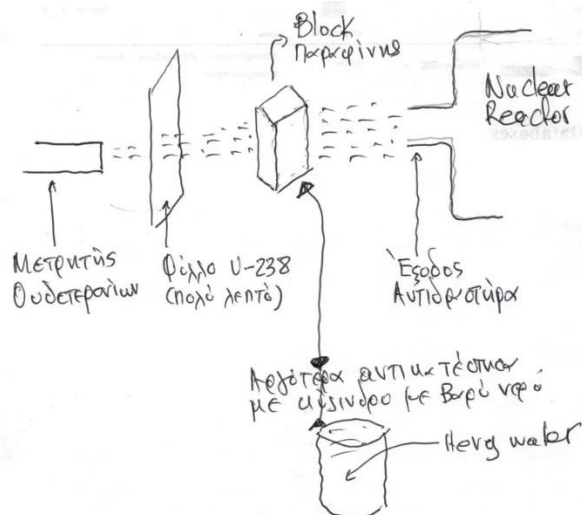 Block
Παραφίνης
Nuclear
Reactor
Μετρητής
Ουδετερονίων
Φύλλο U-238
(πολύ λεπτό)
Έξοδος
Αντιδραστήρα
Αργότερα αντικατέστησαν
με κύλινδρο με Βαρύ νερό
Hevy water